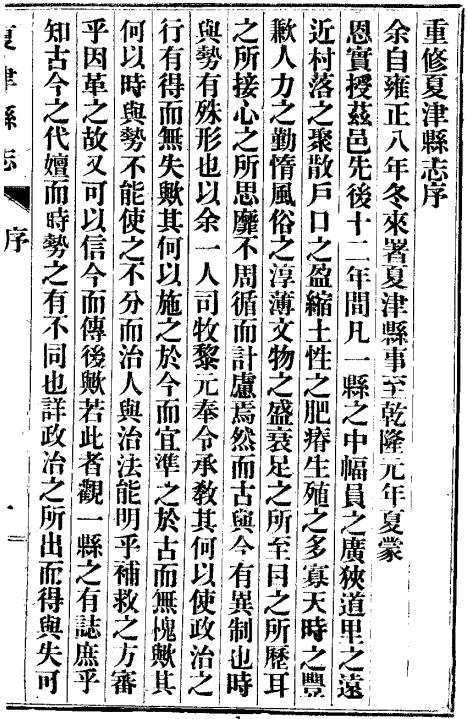 重修夏津縣志序
余自雍正八年冬來署夏津縣事至乾隆元年夏蒙
恩實授茲邑先後十二年間凡一縣之中幅員之廣狹道里之遠
近村落之聚散戶口之盈縮土性之肥瘠生殖之多寡天時之豐
歉人力之勤惰風俗之淳薄文物之盛衰足之所至目之所歷耳
之所接心之所思靡不周循而計慮焉然而古與今有異制也時
與勢有殊形也以余一人司牧黎元奉令承教其何以使政治之
行有得而無失歟其何以施之於今而宜準之於古而無愧歟其
何以時與勢不能使之不分而治人與治法能明乎補救之方審
乎因革之故又可以信今而傳後歟若此者觀一縣之有誌庶乎
知古今之代嬗而時勢之有不同也詳政治之所出而得與失可
夏津縣志
序
一